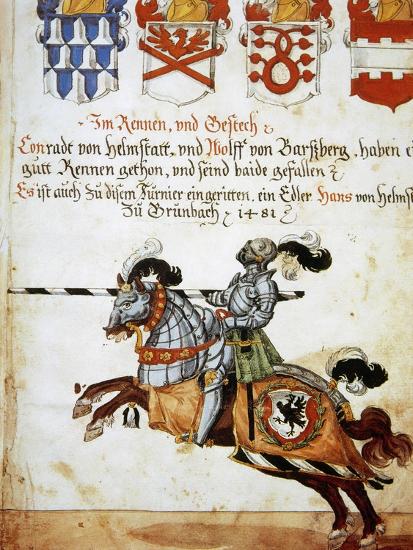 Im Rennen, und Gestech
Conradt von Helmstatt, und Wolff von Barßberg, haben ei
gutt Rennen gethon, und seind baide gefallen
Es ist auch Zu disem Turnier eingeritten, ein Edler Hans von Helmst
Zu Grunbach 1481